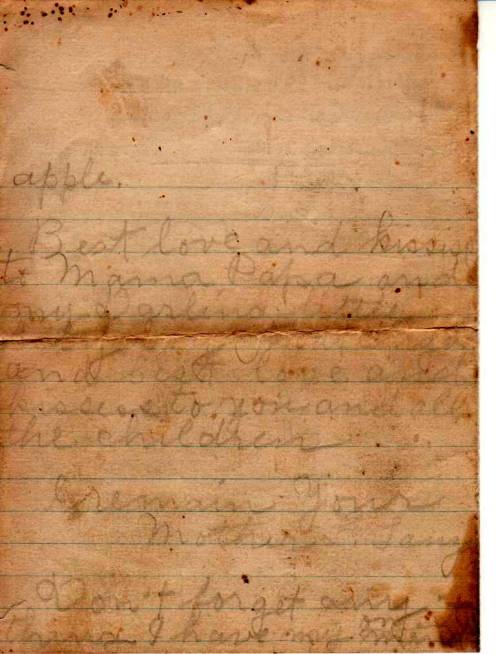 apple.
Best love and kisses
to Mama Papa and
my Darling little
and best love and
kisses to you and all
the children
I remain Your
Mother
Don't forget any
thing I have my